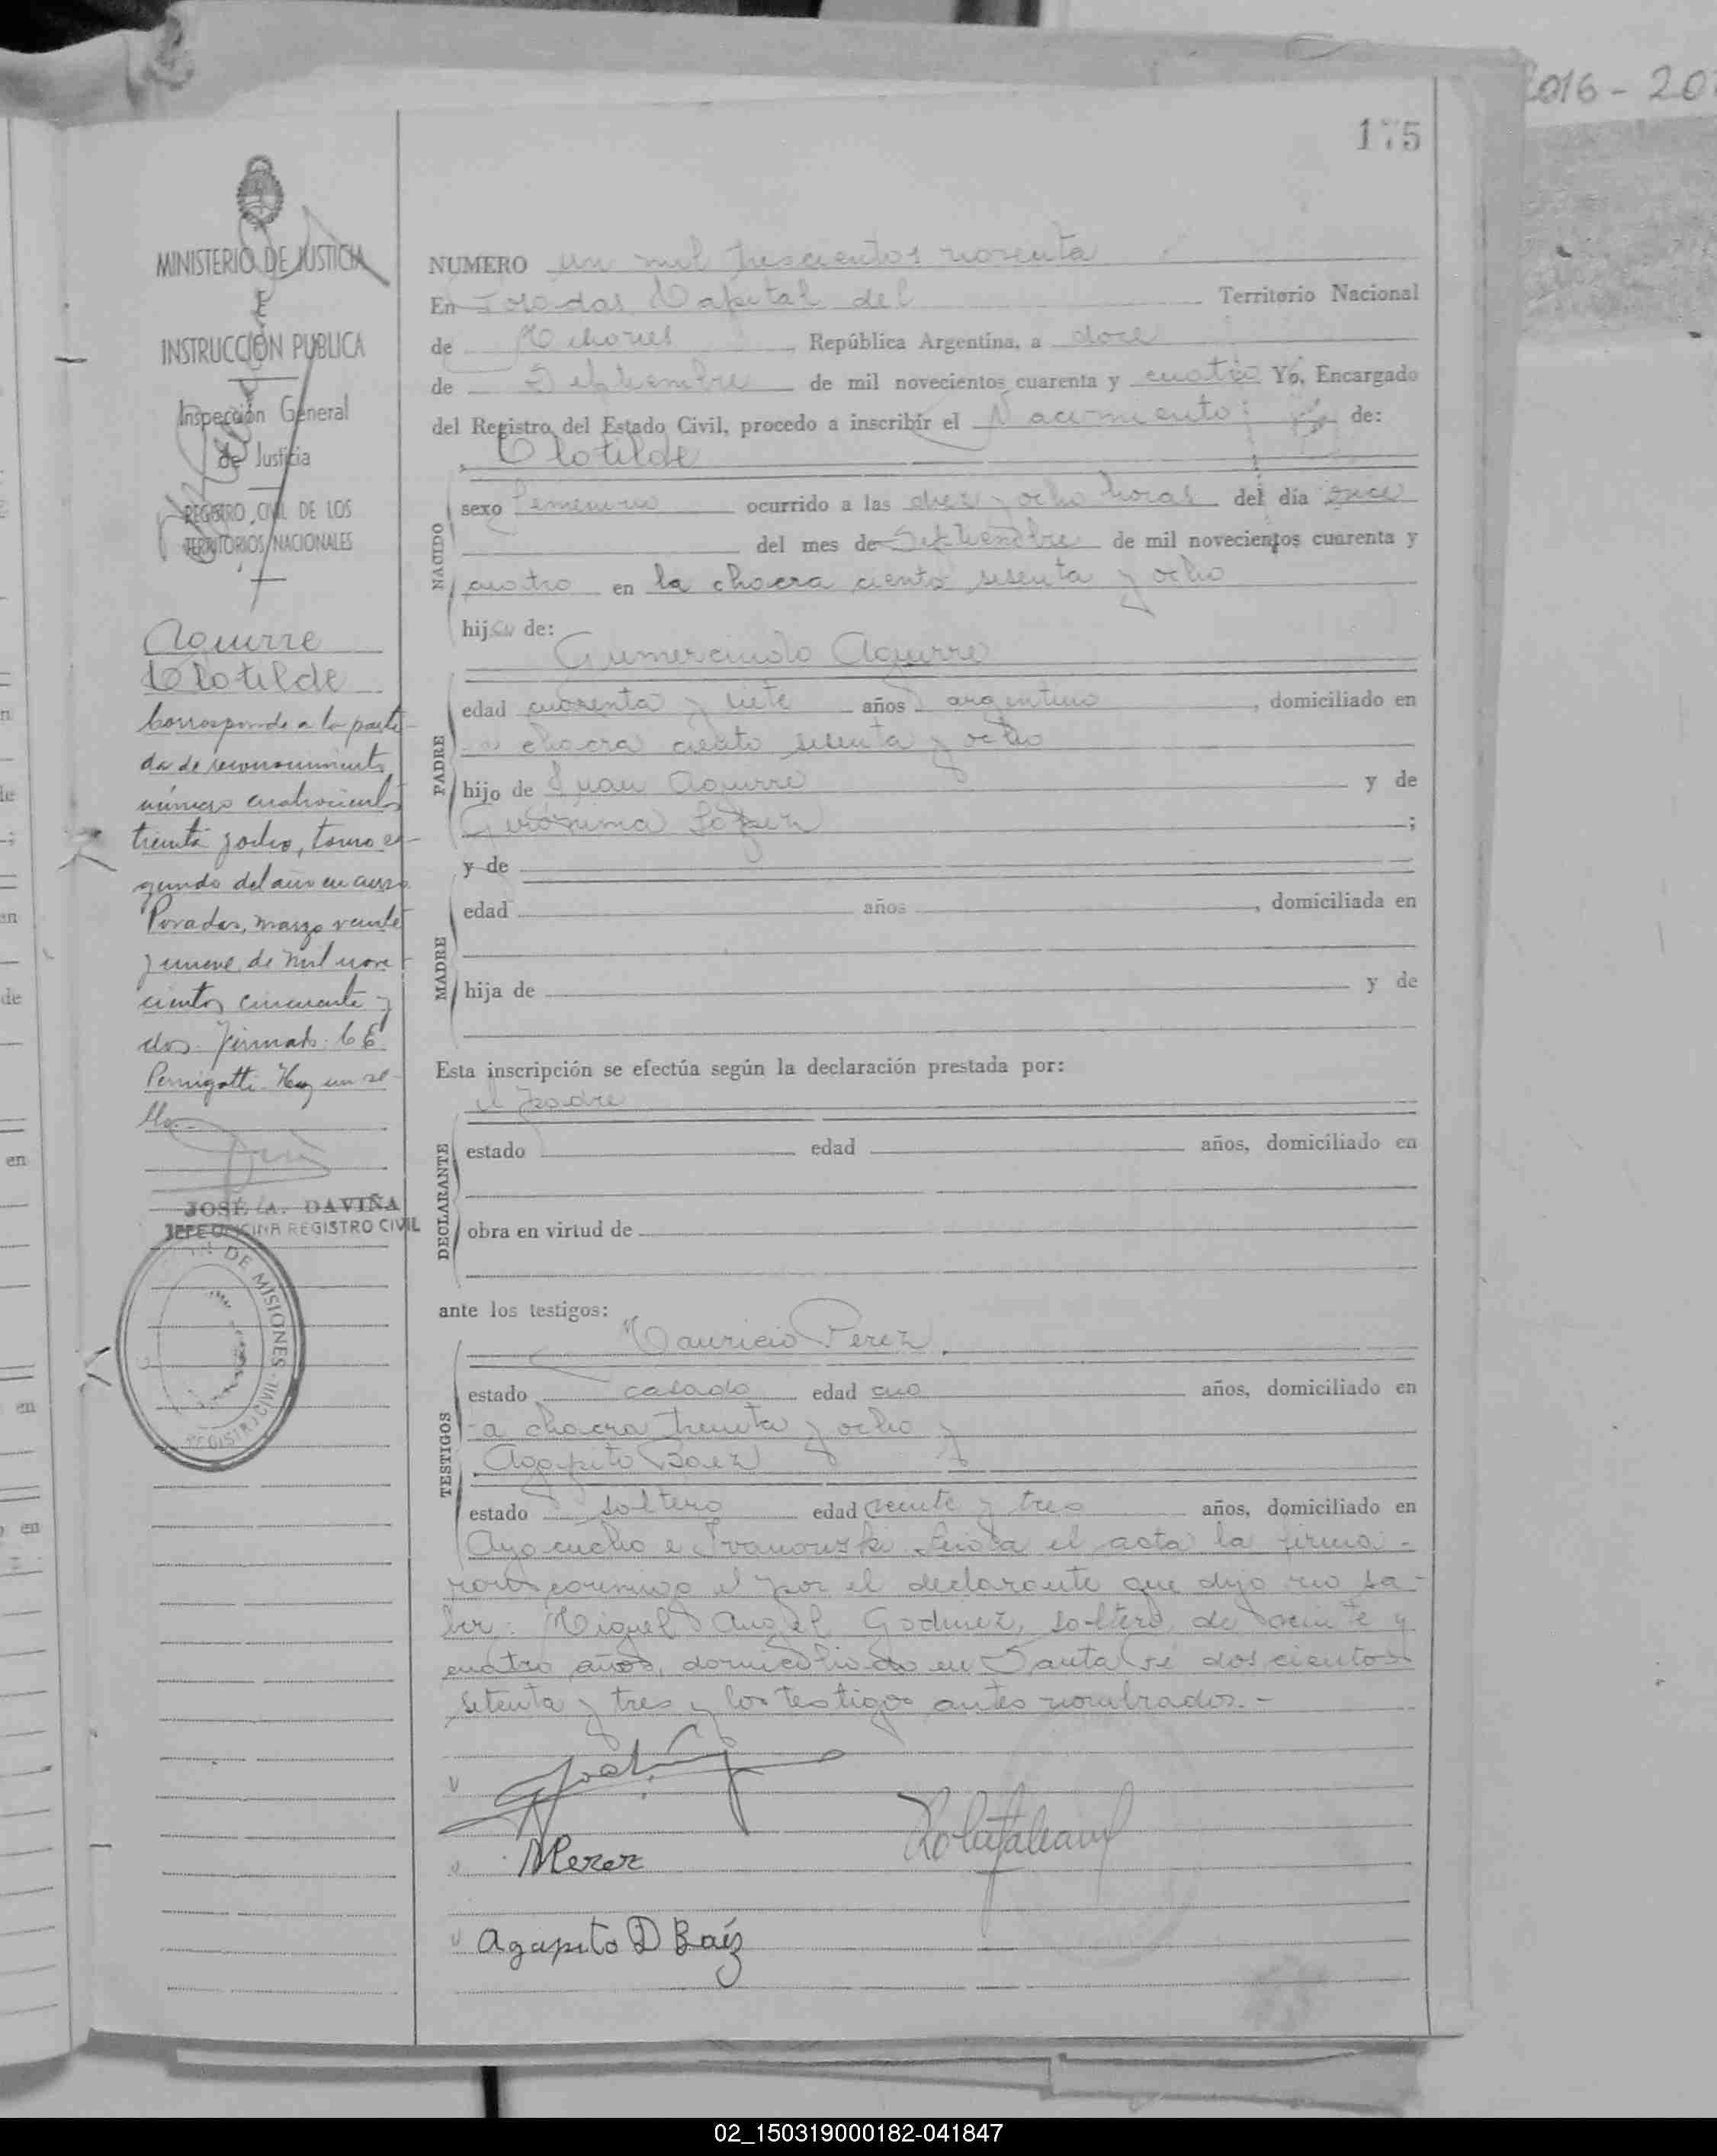 2016 - 20
175
MINISTERIO DE JUSTICIA
E
INSTRUCCIÓN PUBLICA
Inspección General
de Justicia
REGISTRO CIVIL DE LOS
TERRITORIOS NACIONALES
Aguirre
Clotilde
Corresponde a la parti-
da de reconocimiento
número cuatrocientos
treinta y ocho, tomo se-
gundo del año en curso.
Posadas, marzo veinte
y nueve de mil nove
cientos cincuenta y
dos. Firmado: C E
Pernigotti. Hay un se-
llo.
JOSÉ A. DAVIÑA
JEFE OFICINA REGISTRO CIVIL
DE MISIONES
REGISTRO CIVIL
NUMERO un mil trescientos noventa
En Posadas Capital del Territorio Nacional
de Misiones República Argentina, a doce
de Septiembre de mil novecientos cuarenta y cuatro Yo, Encargado
del Registro del Estado Civil, procedo a inscribir el Nacimiento de:
Clotilde
NACIDO
sexo femenino ocurrido a las diez y ocho horas del dia once
del mes de Septiembre de mil novecientos cuarenta y
cuatro en la chacra ciento sesenta y ocho
hija de:
Gumercindo Aguirre
PADRE
edad cuarenta y siete años argentino, domiciliado en
la chacra ciento sesenta y ocho
hijo de Juan Aguirre y de
Gerónima López;
y de
MADRE
edad años, domiciliada en
hija de y de
Esta inscripción se efectúa según la declaración prestada por:
el padre
DECLARANTE
estado edad años, domiciliado en
obra en virtud de
ante los testigos:
Mauricio Perez,
TESTIGOS
estado casado edad años, domiciliado en
la chacra treinta y ocho y
Agapito Baez
estado soltero edad veinte y tres años, domiciliado en
Ayacucho e Ivanowski. Leida el acta la firma-
ron conmigo el por el declarante que dijo no sa-
ber: Miguel Angel Godinez, soltero, de veinte y
cuatro años, domiciliado en Santa Fé doscientos
setenta y tres y los testigos antes nombrados.-
MPerez
Agapito D Baéz
02_150319000182-041847